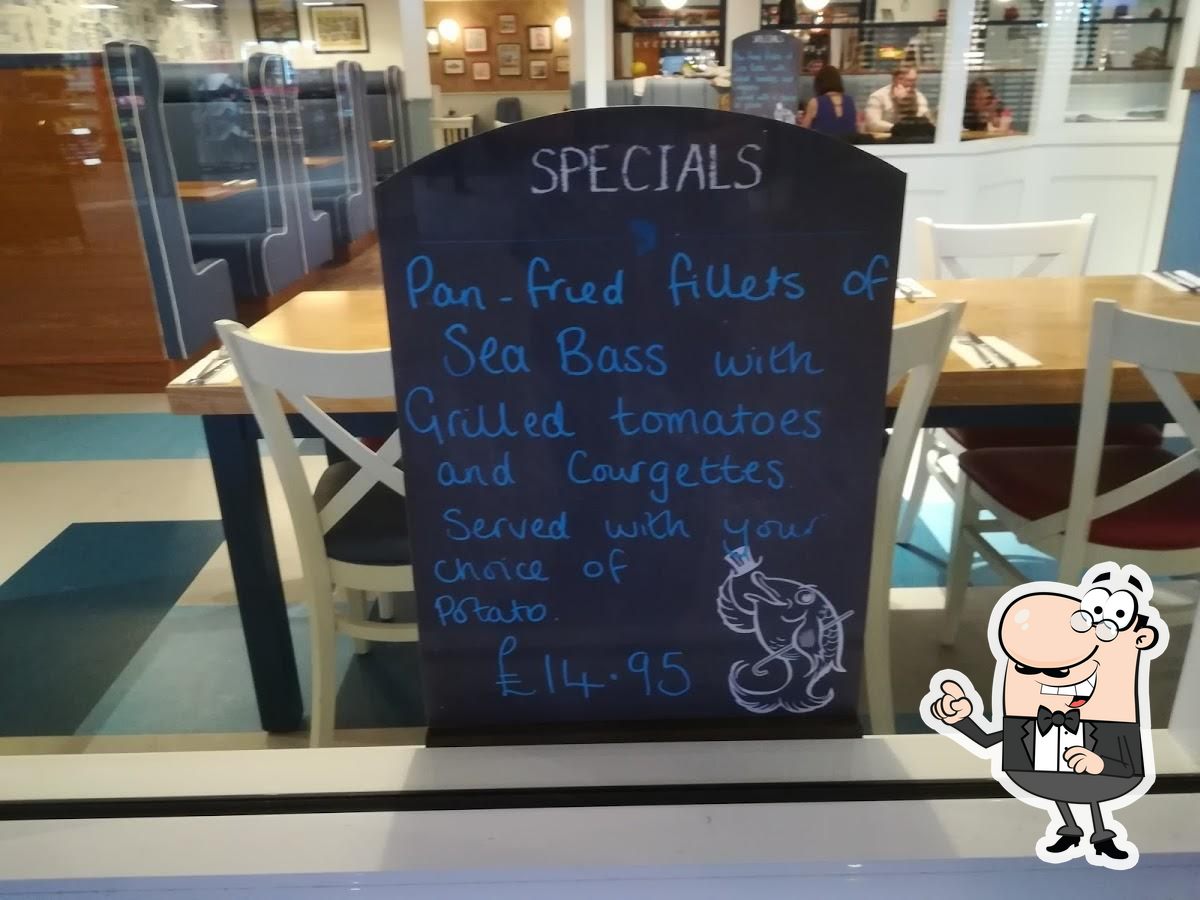 SPECIALS
Pan-fried fillets of
Sea Bass with
Grilled tomatoes
and Courgettes.
Served with your
choice of
Potato.
£14.95
SPECIALS